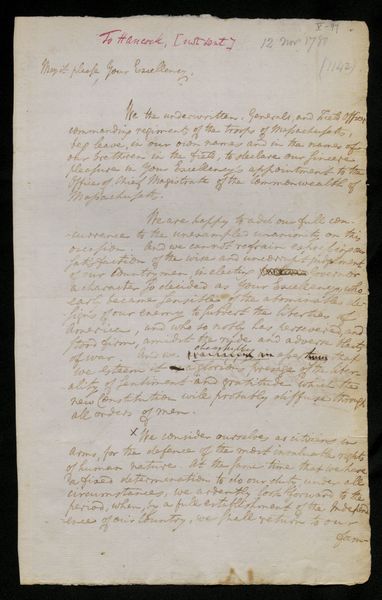 To Hancock, [not sent]
V-99
12 Nov 1780
(1142)
May it please Your Excellency,
We the underwritten, Generals, and Field Officers
commanding regiments of the troops of Massachusetts,
beg leave, in our own names and in the names of
our brethren in the field, to declare our sincere
pleasure in Your Excellency's appointment to the
Office of Chief Magistrate of the Commonwealth of
Massachusetts.
We are happy to add our full con-
currence to the unexampled unanimity on this
occasion. And we cannot refrain expressing our
satisfaction of the wise and uncorrupt judgment
of our Countrymen, in electing Governor
a character so decided as Your Excellency, who
early became sensible of the abominable de-
signs of our enemy to subvert the liberties of
America, and who so nobly has persevered and
stood firm, amidst the rude and adverse
of war. And we cheerfully that
we esteem it a glorious presage of the liber-
ality of sentiment and gratitude which the
new Constitution will probably diffuse through
all orders of men.
x We consider ourselves as citizens in
arms, for the defence of the most invaluable rights
of human nature. At the same time that we have
a fixed determination to do our duty under all
circumstances, we ardently look forward to the
period, when, by a full establishment of the Independ
ence of our Country, we shall return to our
fam-